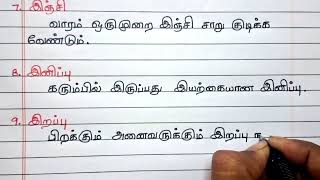 7. இஞ்சி
வாரம் ஒருமுறை இஞ்சி சாறு குடிக்க
வேண்டும்.
8. இனிப்பு
கரும்பில் இருப்பது இயற்கையான இனிப்பு.
9. இறப்பு
பிறக்கும் அனைவருக்கும் இறப்பு ந